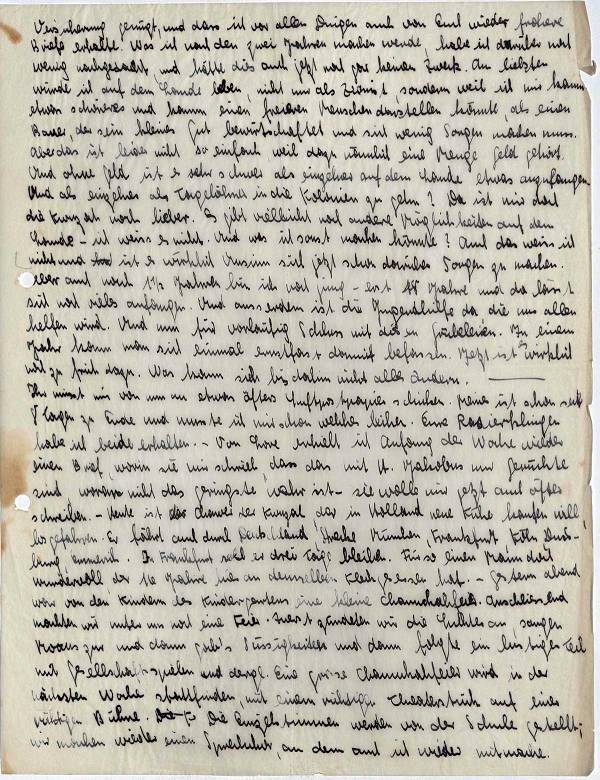 Versicherung genügt, und dass ich vor allen Dingen auch von Euch wieder frohere
Briefe erhalte. Was ich nach den zwei Jahren machen werde, habe ich darüber noch
wenig nachgedacht und hätte dies auch jetzt noch gar keinen Zweck. Am liebsten
würde ich auf dem Lande leben, nicht nur als Zionist, sondern weil ich mir kaum
etwas schöneres und kaum einen freieren Menschen darstellen könnte, als einen
Bauer der sein kleines Gut bewirtschaftet und sich wenig Sorgen machen muss.
Aber das ist leider nicht so einfach weil dazu nämlich eine Menge Geld gehört.
Und ohne Geld ist es sehr schwer als einzelner auf dem Lande etwas anzufangen.
Und als einzelner als Tagelöhner in die Kolonien zu gehn? Da ist mir doch
die Kwuzah noch lieber. Es gibt vielleicht noch andere Möglichkeiten auf dem
Lande - ich weiss es nicht. Und was ich sonst machen könnte? Auch das weiss ich
nicht und es wirklich Unsinn sich jetzt schon darüber Sorgen zu machen.
Aber auch nach 1½ Jahren bin ich noch jung - erst 18 Jahre und da lässt
sich noch vieles anfangen. Und ausserdem ist die Jugendhilfe da die uns allen
helfen wird. Und nun für vorläufig Schluss mit diesen Grübeleien. In einem
Jahr kann man sich einmal ernsthaft damit befassen. Jetzt ist's wirklich
noch zu früh dazu. Was kann sich bis dahin nicht alles ändern.
Ihr müsst mir von nun an etwas öfters Luftpostpapier schicken. Meines ist schon seit
8 Tagen zu Ende und musste ich mir schon welches leihen. Eure Rasierklingen
habe ich beide erhalten. - Von Lore erhielt ich Anfang der Woche wieder
einen Brief, worin sie mir schrieb, dass das mit H. Jakobus nur Gerüchte
sind, woran nicht das geringste wahr ist - sie wolle mir jetzt auch öfter
schreiben. - Heute ist der Chawer der Kwuzah der in Holland neue Kühe kaufen will
losgefahren. Er fährt auch durch Deutschland, Strecke München, Frankfurt, Köln Duis-
burg, Emmerich. In Frankfurt soll er drei Tage bleiben. Für so einen Mann doch
wundervoll der 16 Jahre hier an demselben Fleck gesessen hat. - Gestern abend
war von den Kindern des Kindergartens eine kleine Channukahfeier. Anschliessend
machten wir unter uns noch eine Feier. Zuerst zündeten wir die Lichter an sangen
Moaus zur und dann gab's Süssigkeiten und dann folgte ein lustiger Teil
mit Gesellschaftsspielen und dergl. Eine grosse Channukahfeier wird in der
nächsten Woche stattfinden, mit einem richtigen Theaterstück auf einer
richtigen Bühne. Die Einzelstimmen werden von der Schule gestellt,
wir machen wieder einen Sprechchor, an dem auch ich wieder mitmache.